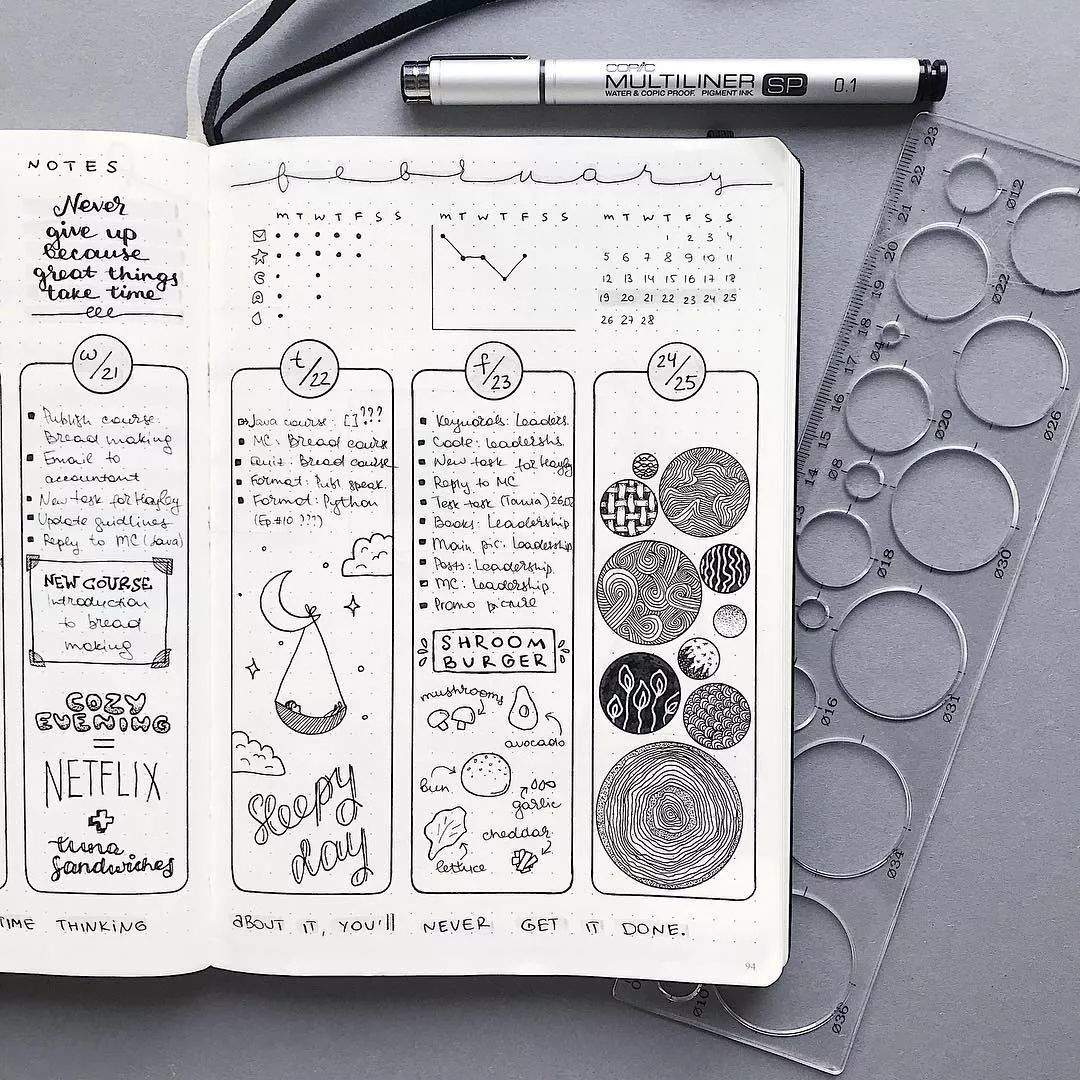 COPIC
MULTILINER SP 0.1
WATER & COPIC PROOF. PIGMENT INK
NOTES
Never
give up
because
great things
take time
february
M T W T F S S
M T W T F S S
M T W T F S S
1 2 3 4
5 6 7 8 9 10 11
12 13 14 15 16 17 18
19 20 21 22 23 24 25
26 27 28
w/21
Publish course:
Bread making
Email to
accountant
New task for Hayley
Update guidlines
Reply to MC (Java)
NEW COURSE
Introduction
to bread
making
COZY
EVENING
=
NETFLIX
+
tuna
sandwiches
t/22
Java course: [] ???
MC: Bread course
Quiz: Bread course
Format: Publ speak.
Format: Python
(Ep.#10 ???)
Sleepy
day
f/23
Keywords: Leaders.
Code: Leadershs.
New task for Hayley
Reply to MC
Test task (Tania)
Books: Leadership
Main pic: Leadership
Posts: Leadership
MC: Leadership
Promo picture
SHROOM
BURGER
mushrooms
avocado
bun
garlic
cheddar
lettuce
24/25
TIME THINKING ABOUT IT, YOU'll NEVER GET IT DONE.
94
23
22
21
20
19
18
17
16
15
14
13
Ø12
Ø22
Ø04
Ø26
Ø20
Ø08
Ø30
Ø18
Ø31
Ø16
Ø34
Ø10
Ø36